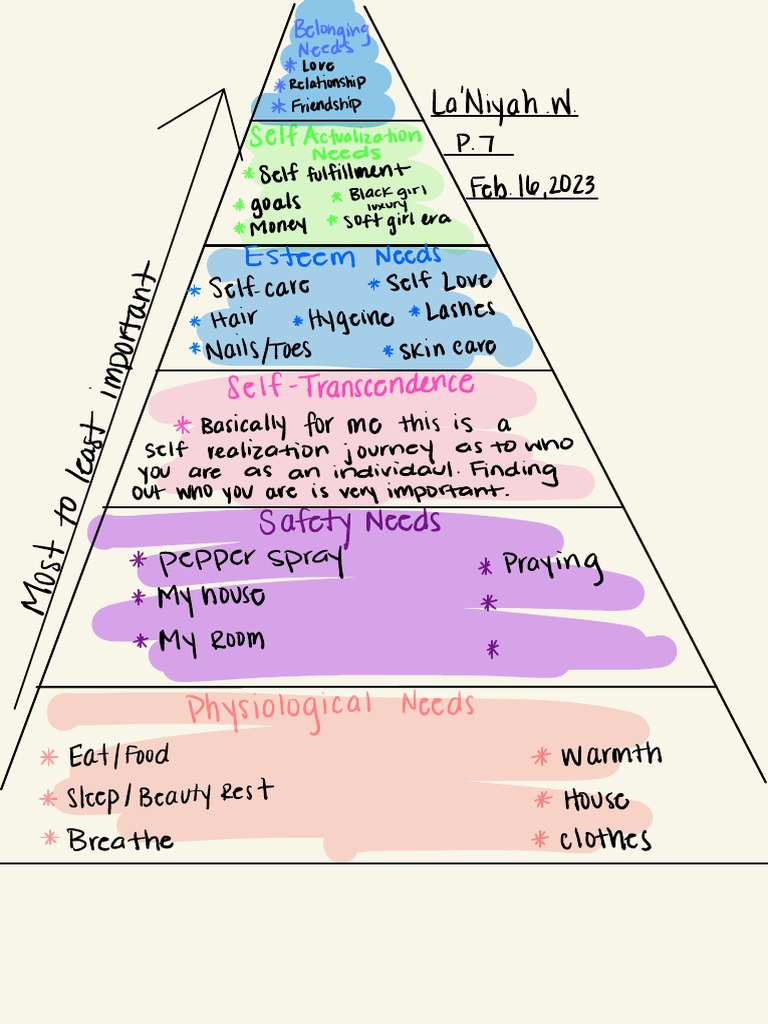 Belonging
Needs
* Love
* Relationship
* Friendship
La'Niyah .W.
P. 7
Feb. 16, 2023
Self Actualization
Needs
* Self fulfillment
* goals * Black girl
luxury
* Money * Soft girl era
Esteem Needs
* Self-care * Self Love
* Hair * Hygeine * Lashes
* Nails/Toes * skin care
Self-Transcendence
* Basically for me this is a
self realization journey as to who
you are as an individaul. Finding
out who you are is very important.
Most to least important
Safety Needs
* pepper spray * Praying
* My house *
* My Room *
Physiological Needs
* Eat/Food * Warmth
* Sleep/Beauty Rest * House
* Breathe * clothes